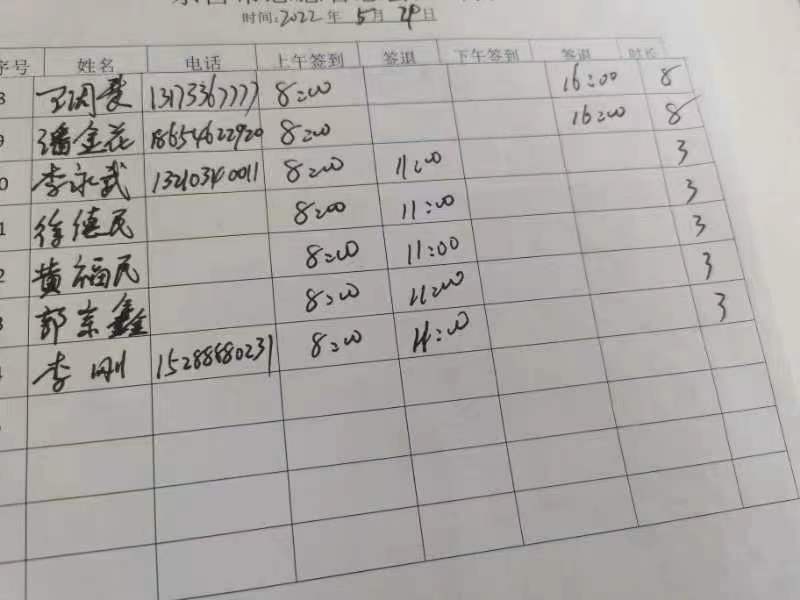 时间:2022 年 5 月 29 日
序号 姓名 电话 上午签到 签退 下午签到 签退 时长
8 13173367777 8:00 16:00 8
9 潘金花 18654622920 8:00 16:00 8
0 李永武 13210340011 8:00 11:00 3
1 徐德民 8:00 11:00 3
2 黄福民 8:00 11:00 3
3 郭宗鑫 8:00 11:00 3
4 李刚 15288880231 8:00 11:00 3